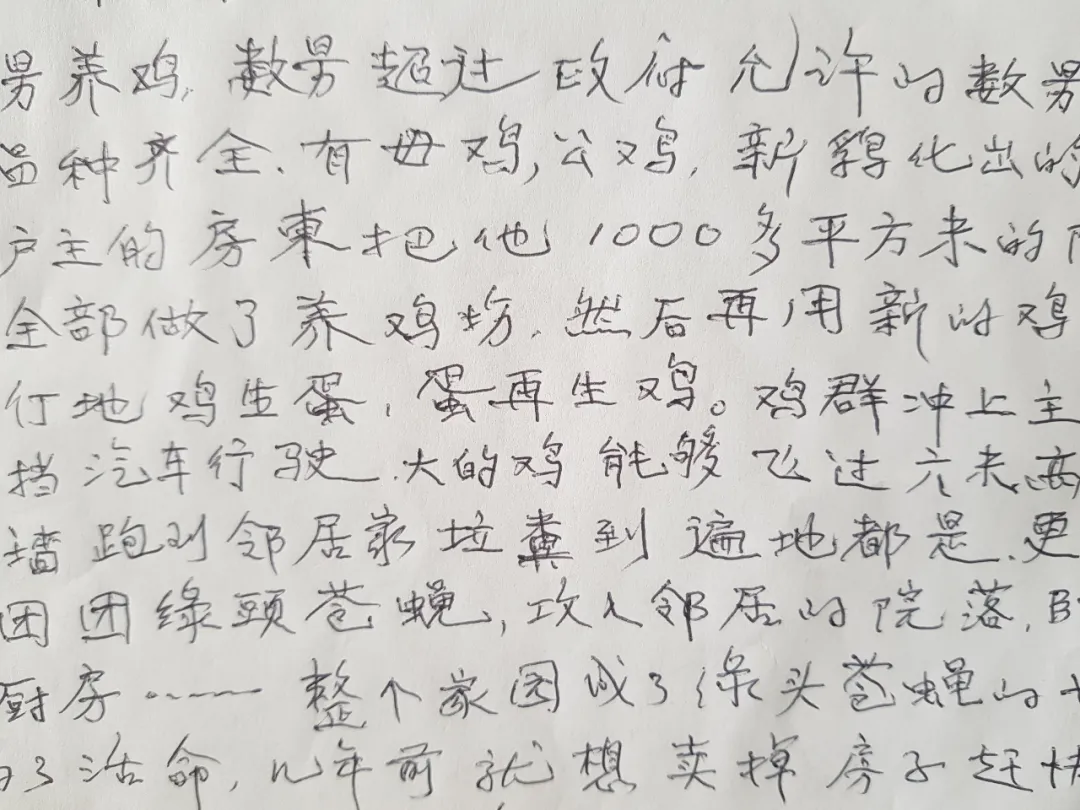 男养鸡,数男超过政府允许的数男
品种齐全.有母鸡,公鸡,新孵化出的
户主的房東把他1000多平方米的
全部做了养鸡场.然后再用新的鸡
行地鸡生蛋,蛋再生鸡。鸡群冲上主
挡汽车行驶.大的鸡能够飞过六米高
墙跑到邻居家拉粪到遍地都是.更
团团绿頭苍蝇,攻入邻居的院落,
厨房……整个家园成了绿头苍蝇的
了活命,几年前就想卖掉房子赶快